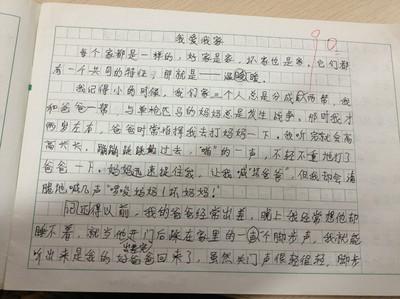 我爱我家
90
每个家都是一样的，好家是家，坏家也是家，它们都
有一个共同的特性，那就是——温暖。
我记得小的时候，我们家三个人总是分成两帮，我
和爸爸一帮，与单枪匹马的妈妈总是发生战争。那时我才
两岁左右，爸爸时常指挥我去打妈妈一下，我听完就会高
高兴兴，蹦蹦跳跳地过去，“啪”的一声，不轻不重地打了
爸爸一下。妈妈迅速捉住我，让我喊“坏爸爸”，但我却会满
腿地喊几声“妈妈！坏妈妈！”
记得以前，我的爸爸经常出差，晚上我经常想他却
睡不着，就当他开门后踩在家里的一个脚步声，我就能
听出来是我的好爸爸回来了，虽然关门声很轻很轻，脚步